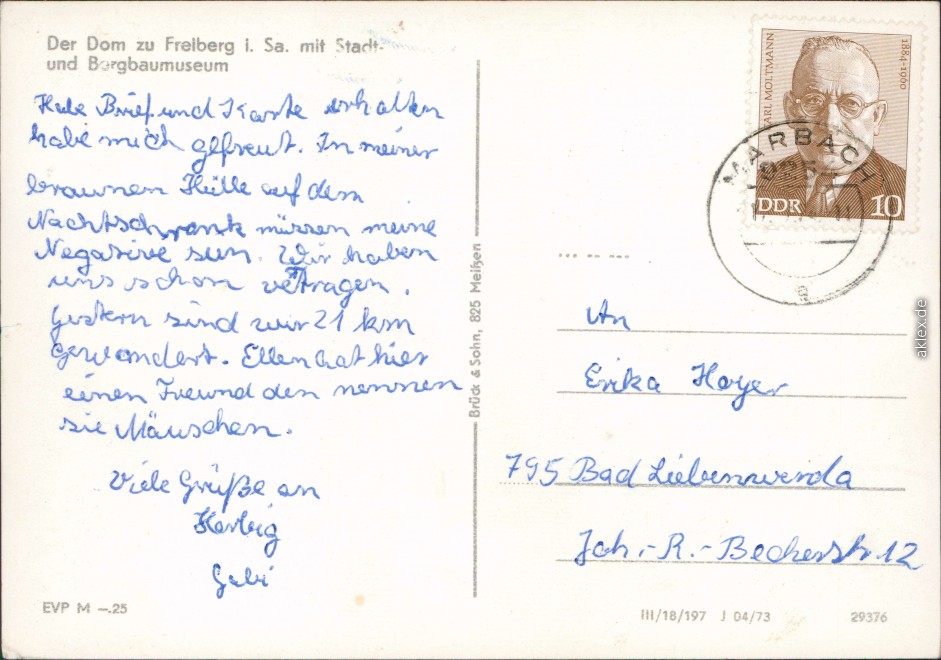 Der Dom zu Freiberg i. Sa. mit Stadt-
und Bergbaumuseum
Habe Brief und Karte erhalten
habe mich gefreut. In meiner
braunen Hülle auf dem
Nachtschrank müssen meine
Negative sein. Wir haben
uns schon vertragen.
Gestern sind wir 21 km
gewandert. Ellen hat hier
einen Freund den nennen
sie Mäuschen.
Viele Grüße an
Herbig
Gabi
EVP M —.25
Brück & Sohn, 825 Meißen
KARL MOLTMANN
1884-1960
DDR 10
MARBACH
An
Erika Hoyer
795 Bad Liebenwerda
Joh.-R.-Becherstr. 12
III/18/197 J 04/73
29376
aklex.de